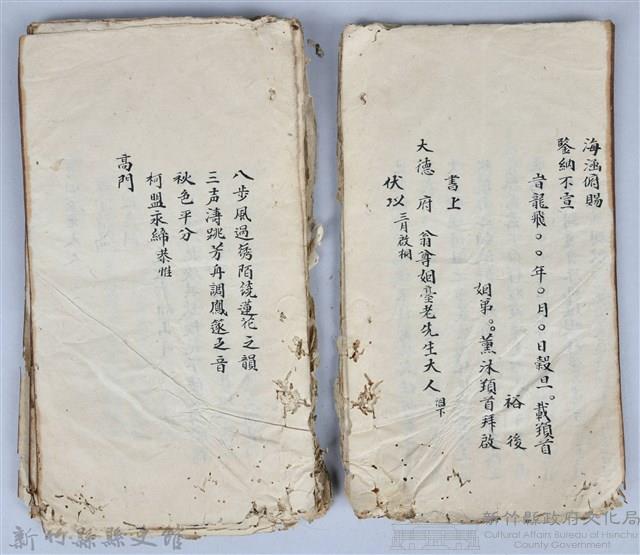 海涵俯賜
鑒納不宣
旹龍飛○○年○月○日穀旦。載頴首
裕後
姻弟○○薰沐頴首拜啟
書上
大德府翁尊姻臺老先生大人閣下
伏以三月啟桐
八步風過綉陌綻蓮花之韻
三声濤跳芳舟調鳳篴之音
秋色平分
柯盟永締恭惟
高門
新竹縣縣史館
新竹縣政府文化局
Cultural Affairs Bureau of Hsinchu
County Government